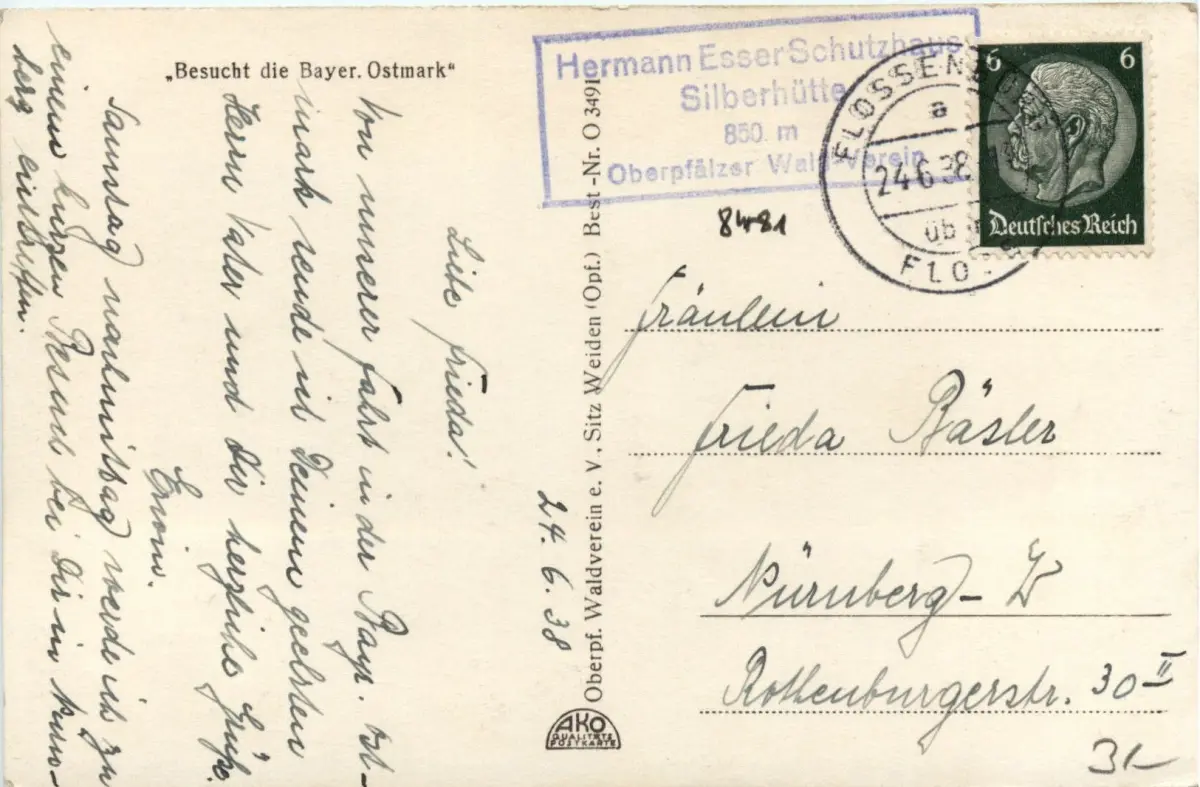 „Besucht die Bayer. Ostmark“
24. 6. 38
Liebe Frieda!
Von unserer Fahrt in der Bayr. Ost-
mark sende ich Deinem geehrten
Herrn Vater und Dir herzliche Grüße.
Erwin.
Samstag nachmittag werde ich zu
einem kurzen Besuch bei Dir in Nürn-
berg eintreffen.
Oberpf. Waldverein e. V., Sitz Weiden (Opf.) Best-Nr. O 3491
AKO
QUALITÄTS
POSTKARTE
Hermann Esser Schutzhaus
Silberhütte
850 m
Oberpfälzer Wald-Verein
8481
FLOSSENBÜRG
a
24.6.38
üb
FLOSS
6 6
Deutsches Reich
Fräulein
Frieda Bäsler
Nürnberg - W
Rothenburgerstr. 30 II
31-